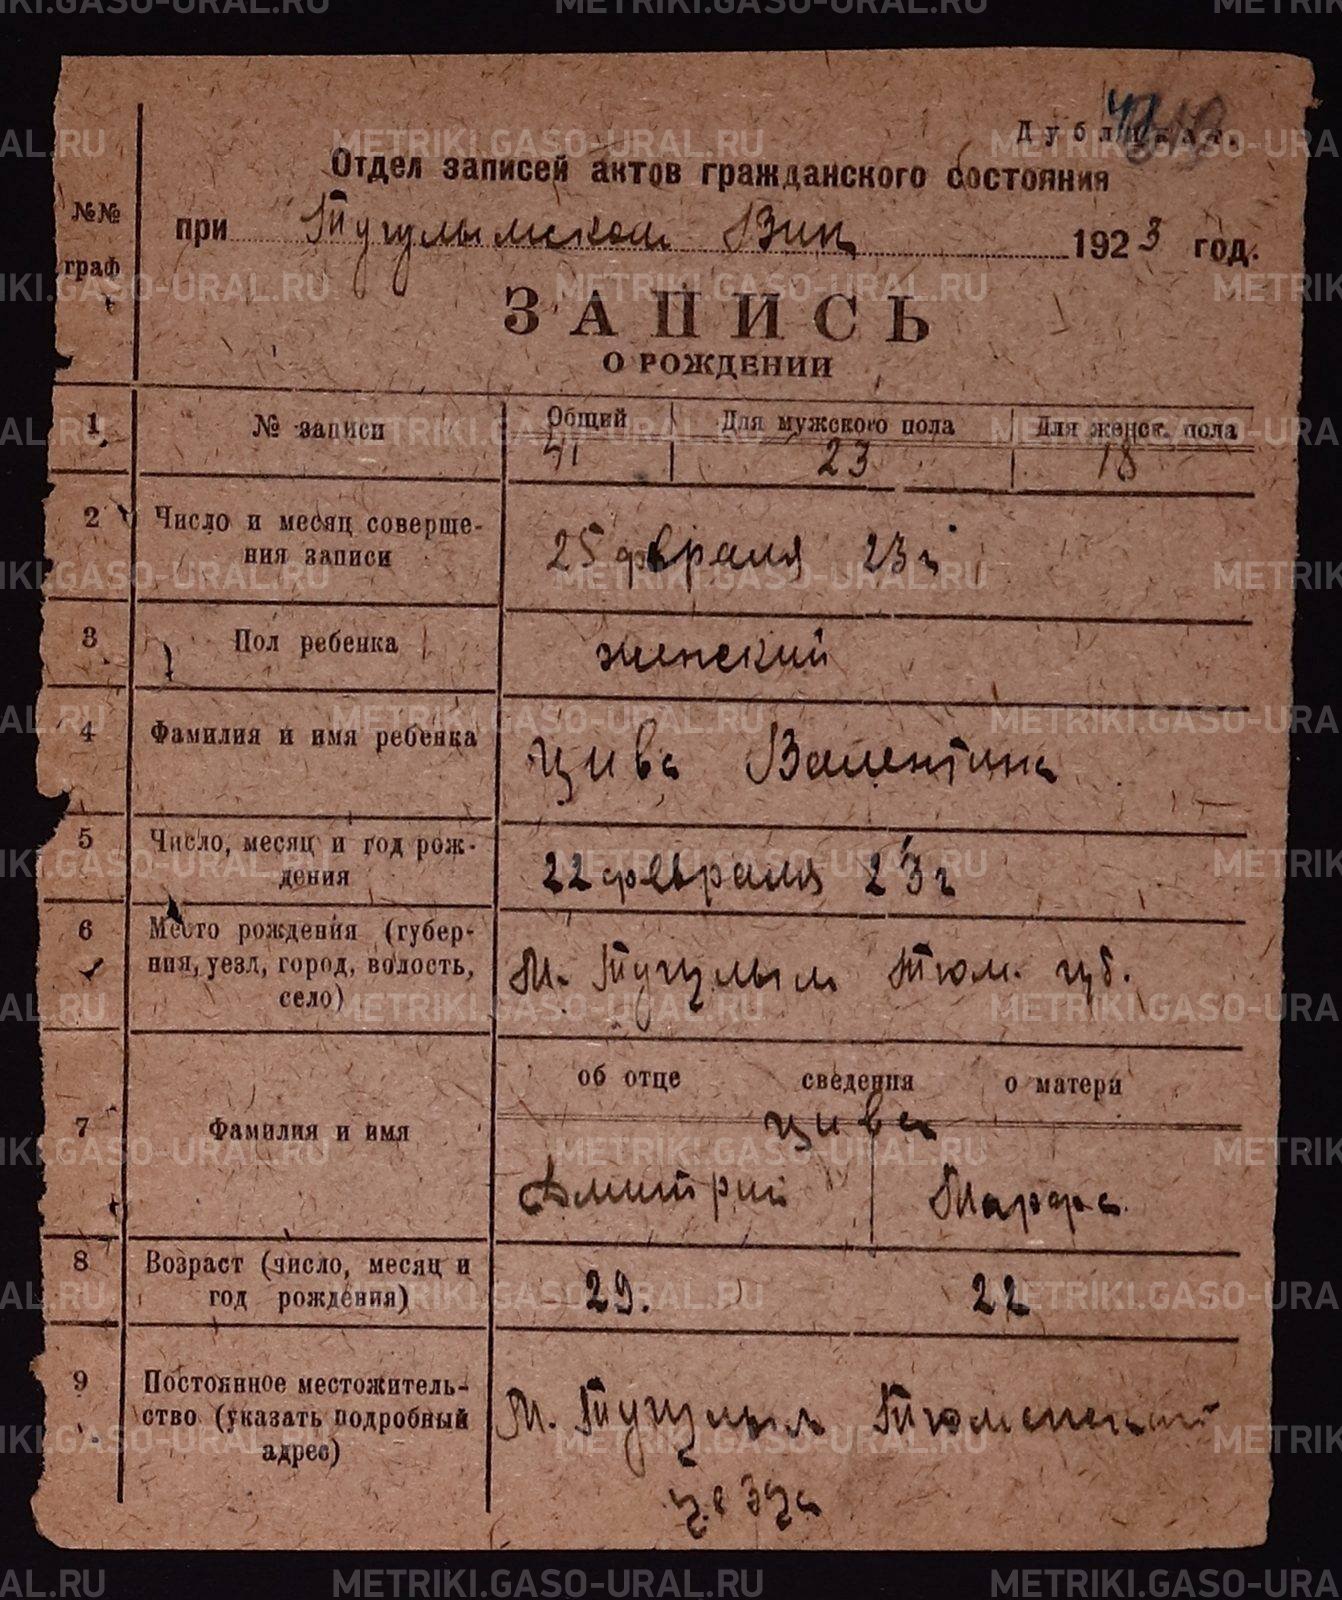 Дубликат.
Отдел записей актов гражданского состояния
№№ граф
при Тугулымском Вик 1923 год.
ЗАПИСЬ
О РОЖДЕНИИ
1 № записи Общий Для мужского пола Для женск. пола
41 23 18
2 Число и месяц соверше-
ния записи
25 февраля 23 г
3 Пол ребенка женский
4 Фамилия и имя ребенка Цива Валентина
5 Число, месяц и год рож-
дения
22 февраля 23 г
6 Место рождения (губер-
ния, уезд, город, волость,
село)
М. Тугулым Тюм. губ.
об отце сведения о матери
7 Фамилия и имя Цива
Дмитрий Марфа
8 Возраст (число, месяц и
год рождения)
29. 22
9 Постоянное местожитель-
ство (указать подробный
адрес)
М. Тугулым Тюменский
уезда
METRIKI.GASO-URAL.RU